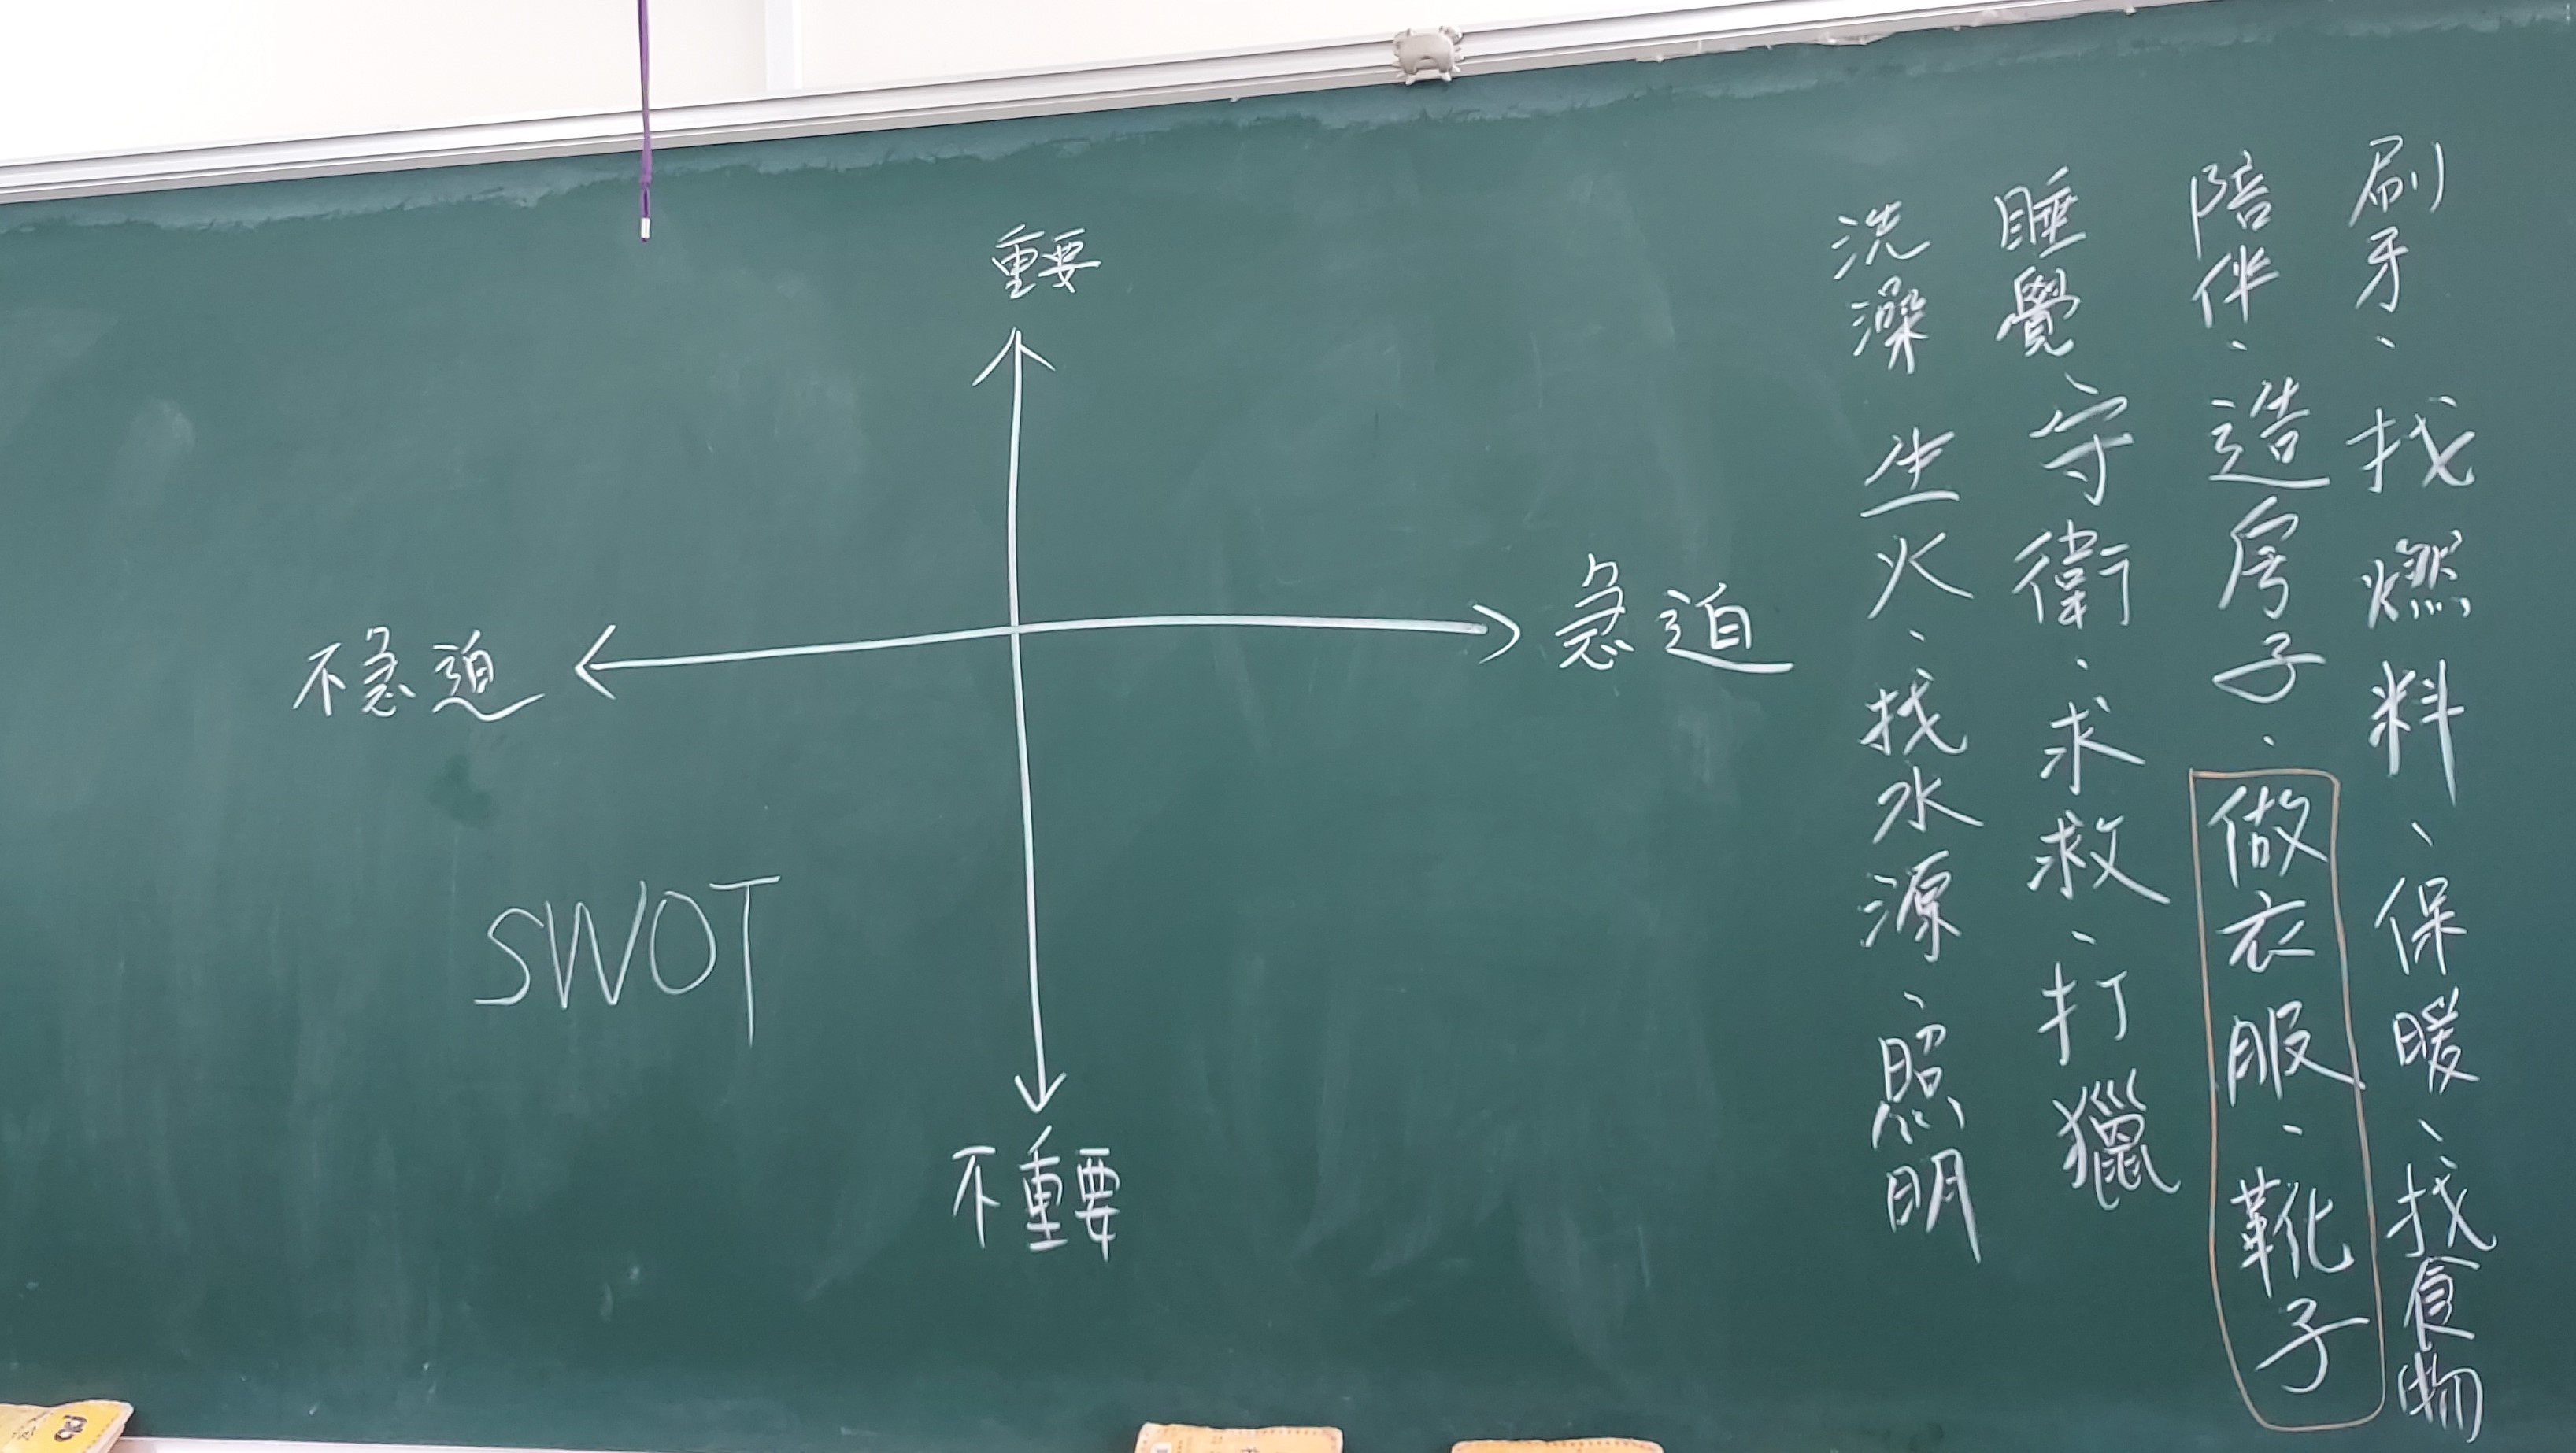 刷牙、找燃料、保暖、找食物
陪伴、造房子、做衣服、靴子
睡覺、守衛、求救、打獵
洗澡 生火、找水源、照明
重要
急迫
不急迫
SWOT
不重要